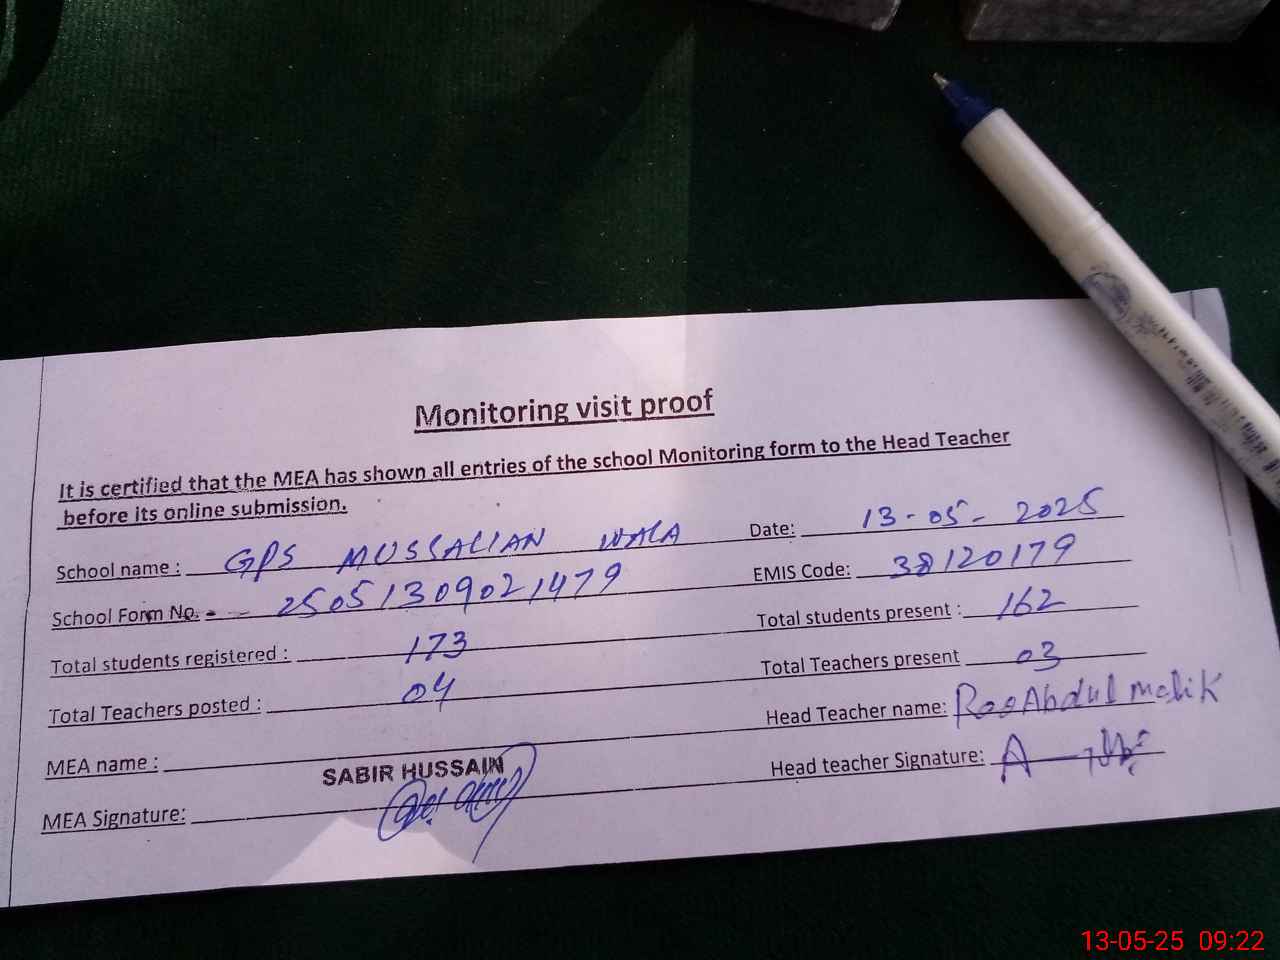 Monitoring visit proof
It is certified that the MEA has shown all entries of the school Monitoring form to the Head Teacher
before its online submission.
School name : GPS MUSSALIAN WALA Date: 13-05-2025
School Form No. - 25051309021479 EMIS Code: 38120179
Total students registered : 173 Total students present : 162
Total Teachers posted : 04 Total Teachers present 03
MEA name : SABIR HUSSAIN Head Teacher name: Rao Abdul malik
MEA Signature: Head teacher Signature:
13-05-25 09:22